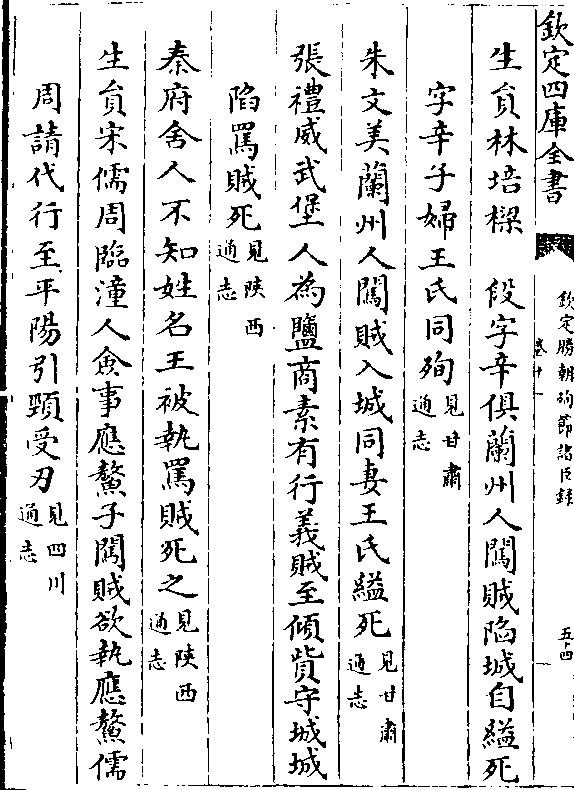 欽定四庫全書
欽定勝朝殉節諸臣錄
卷十一
五十四
生員林培樑　段字辛俱蘭州人闖賊陷城自縊死
字辛子婦王氏同殉見甘肅通志
朱文美蘭州人闖賊入城同妻王氏縊死見甘肅通志
張禮威武堡人為鹽商素有行義賊至傾貲守城城
陷罵賊死見陝西通志
秦府舍人不知姓名王被執罵賊死之見陝西通志
生員宋儒周臨潼人僉事應鰲子闖賊欲執應鰲儒
周請代行至平陽引頸受刃見四川通志